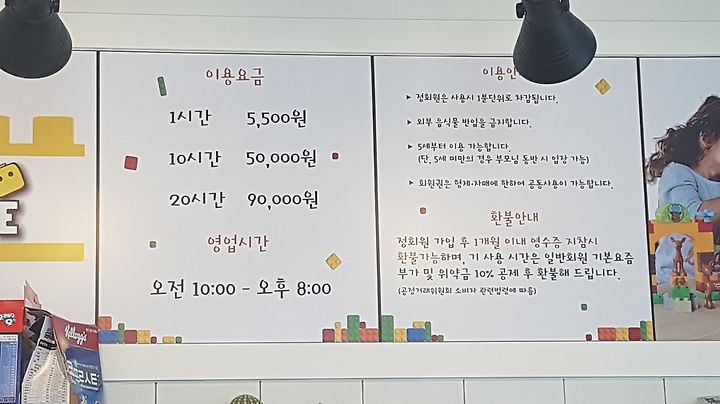 이용요금
1시간 5,500원
10시간 50,000원
20시간 90,000원
영업시간
오전 10:00 - 오후 8:00
이용안
▶ 정회원은 사용시 1분단위로 차감됩니다.
▶ 외부 음식물 반입을 금지합니다.
▶ 5세부터 이용 가능합니다.
(단, 5세 미만의 경우 부모님 동반 시 입장 가능)
▶ 회원권은 형제·자매에 한하여 공동사용이 가능합니다.
환불안내
정회원 가입 후 1개월 이내 영수증 지참시
환불가능하며, 기 사용 시간은 일반회원 기본요즘
부가 및 위약금 10% 공제 후 환불해 드립니다.
(공정거래위원회 소비자 관련법령에 따름)
E
Kellogg's